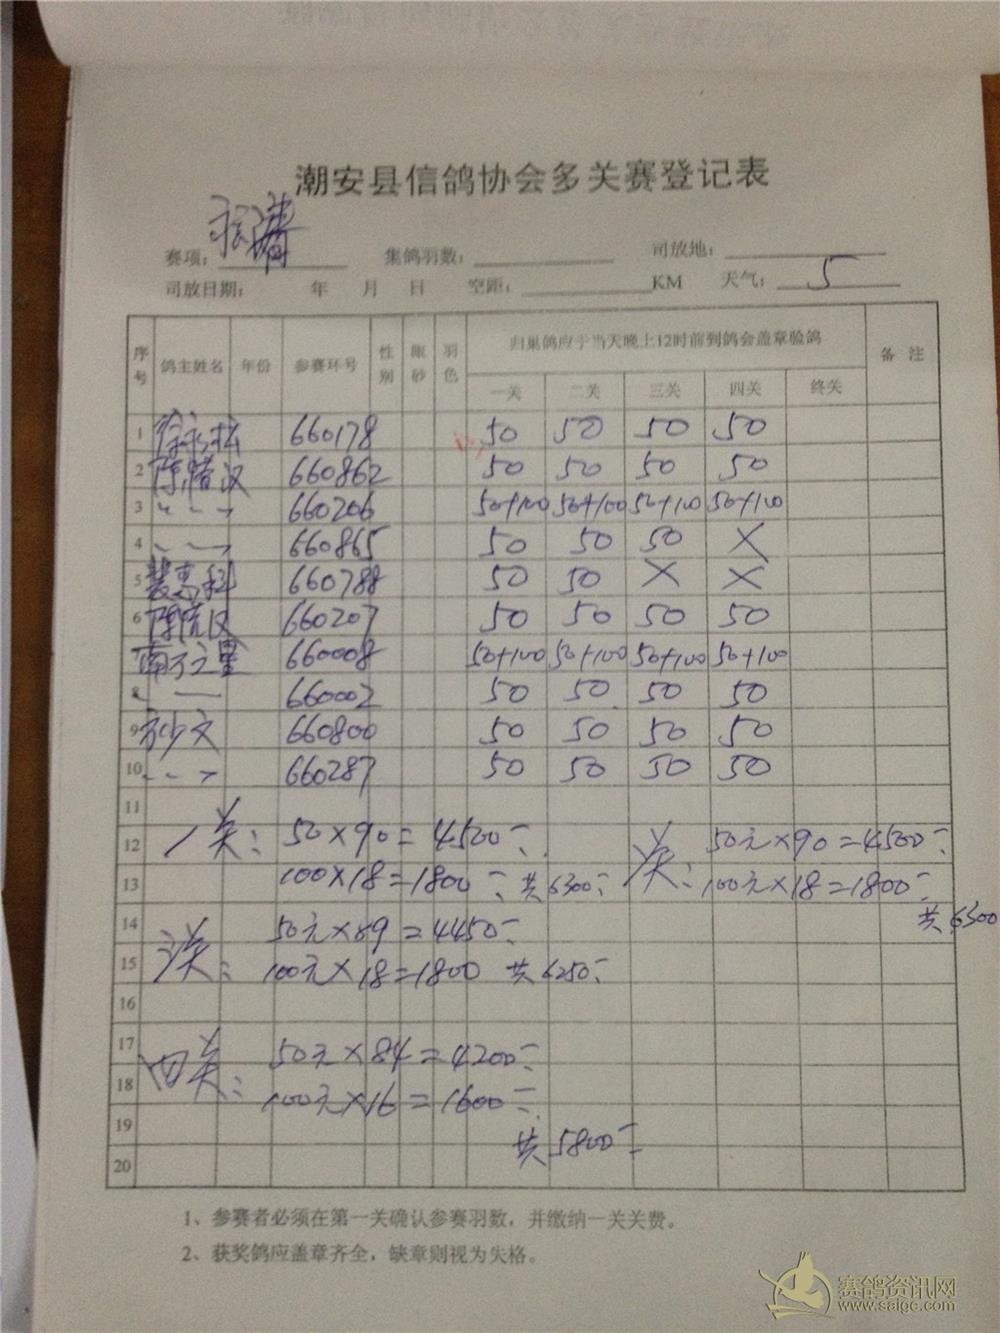 潮安县信鸽协会多关赛登记表
赛项： 集鸽羽数： 司放地：
司放日期： 年 月 日 空距： KM 天气： 5
序号 鸽主姓名 年份 参赛环号 性别 眼砂 羽色 归巢鸽应于当天晚上12时前到鸽会盖章验鸽 备注
一关 二关 三关 四关 终关
1 660178 50 50 50 50
2 660862 50 50 50 50
3 660206 50+100 50+100 50+100 50+100
4 660865 50 50 50 ×
5 660788 50 50 × ×
6 660207 50 50 50 50
南方之星 660008 50+100 50+100 50+100 50+100
8 660002 50 50 50 50
9 方少文 660800 50 50 50 50
10 660287 50 50 50 50
11
12 一关： 50×90=4500 二关： 50元×90=4500
13 100×18=1800 共6300 100元×18=1800
共6300
14 三关： 50元×89=4450
15 100元×18=1800 共6250
16
17 四关： 50元×84=4200
18 100元×16=1600
19 共5800
20
1、参赛者必须在第一关确认参赛羽数，并缴纳一关关费。
2、获奖鸽应盖章齐全，缺章则视为失格。
赛鸽资讯网
www.saigc.com